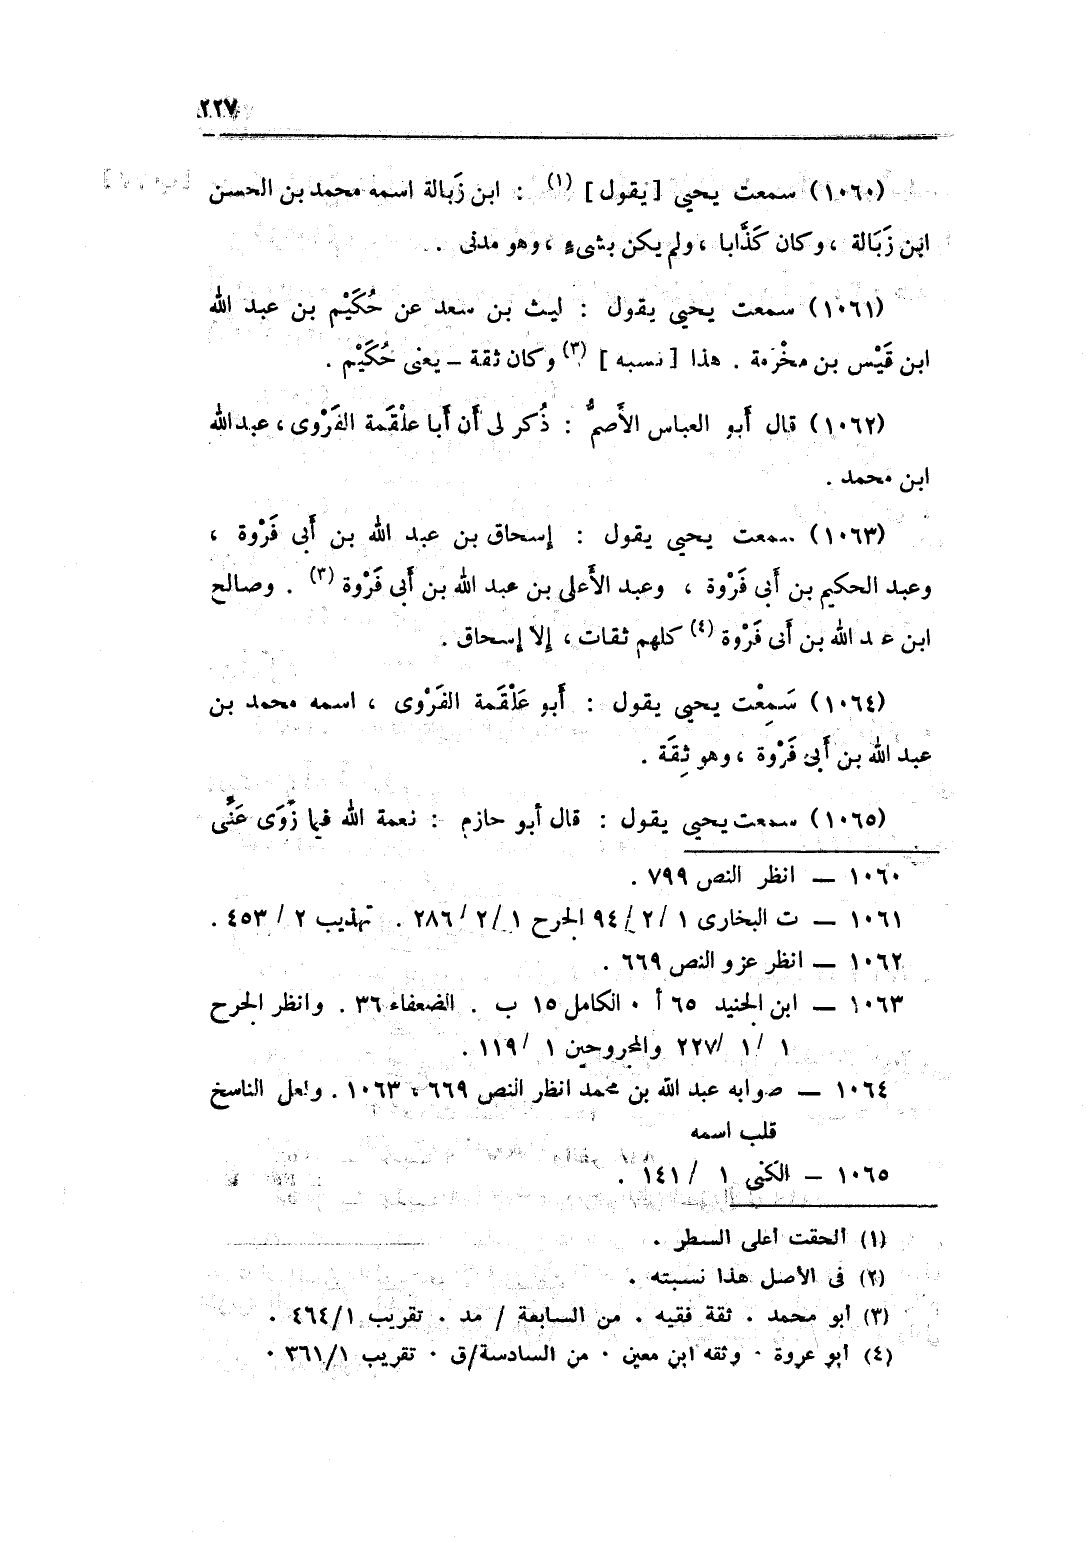 ٢٢٧
(١٠٦٠) سمعت يحيى [يقول] (١) : ابن زَبالة اسمه محمد بن الحسن
ابن زَبَالة ، وكان كَذَّابا ، ولم يكن بشىءٍ ، وهو مدنى .
(١٠٦١) سمعت يحيى يقول : ليث بن سعد عن حُكَيْم بن عبد الله
ابن قَيْس بن مخْرمة . هذا [ نسبه ] (٢) وكان ثقة ــ يعنى حُكَيْم .
(١٠٦٢) قال أَبو العباس الأَصمُّ : ذُكر لى أَن أَبا علْقَمة الفَرْوى ، عبد الله
ابن محمد .
(١٠٦٣) سمعت يحيى يقول : إسحاق بن عبد الله بن أَبى فَرْوة ،
وعبد الحكيم بن أَبى فَرْوة ، وعبد الأَعلى بن عبد الله بن أَبى فَرْوة (٣) . وصالح
ابن عبد الله بن أَبى فَرْوة (٤) كلهم ثقات ، إلا إسحاق .
(١٠٦٤) سَمِعْت يحيى يقول : أَبو عَلْقَمة الفَرْوى ، اسمه محمد بن
عبد الله بن أَبى فَرْوة ، وهو ثِقَة .
(١٠٦٥) سمعت يحيى يقول : قال أبو حازم : نعمة الله فيما زَوَى عَنِّى
١٠٦٠ ــ انظر النص ٧٩٩ .
١٠٦١ ــ ت البخارى ١ /٢ /٩٤ الجرح ١ /٢ /٢٨٦ . تهذيب ٢ / ٤٥٣ .
١٠٦٢ ــ انظر عزو النص ٦٦٩ .
١٠٦٣ ــ ابن الجنيد ٦٥ أ . الكامل ١٥ ب . الضعفاء ٣٦ . وانظر الجرح
١ /١ /٢٢٧ والمجروحين ١ /١١٩ .
١٠٦٤ ــ صوابه عبد الله بن محمد انظر النص ٦٦٩ ، ١٠٦٣ . ولعل الناسخ
قلب اسمه
١٠٦٥ ــ الكنى ١ /١٤١ .
(١) ألحقت أعلى السطر .
(٢) فى الأصل هذا نسبته .
(٣) أبو محمد . ثقة فقيه . من السابعة / مد . تقريب ١/٤٦٤ .
(٤) أبو عروة . وثقه ابن معين . من السادسة/ق . تقريب ١/٣٦١ .